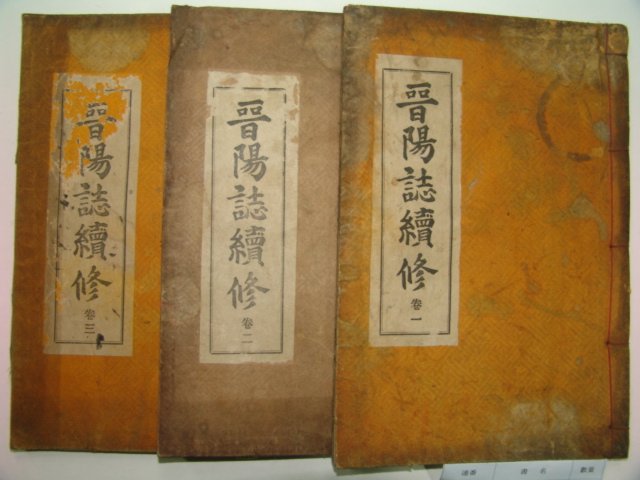 晉陽誌續修 卷一
晉陽誌續修 卷二
晉陽誌續修 卷三
書名
數量